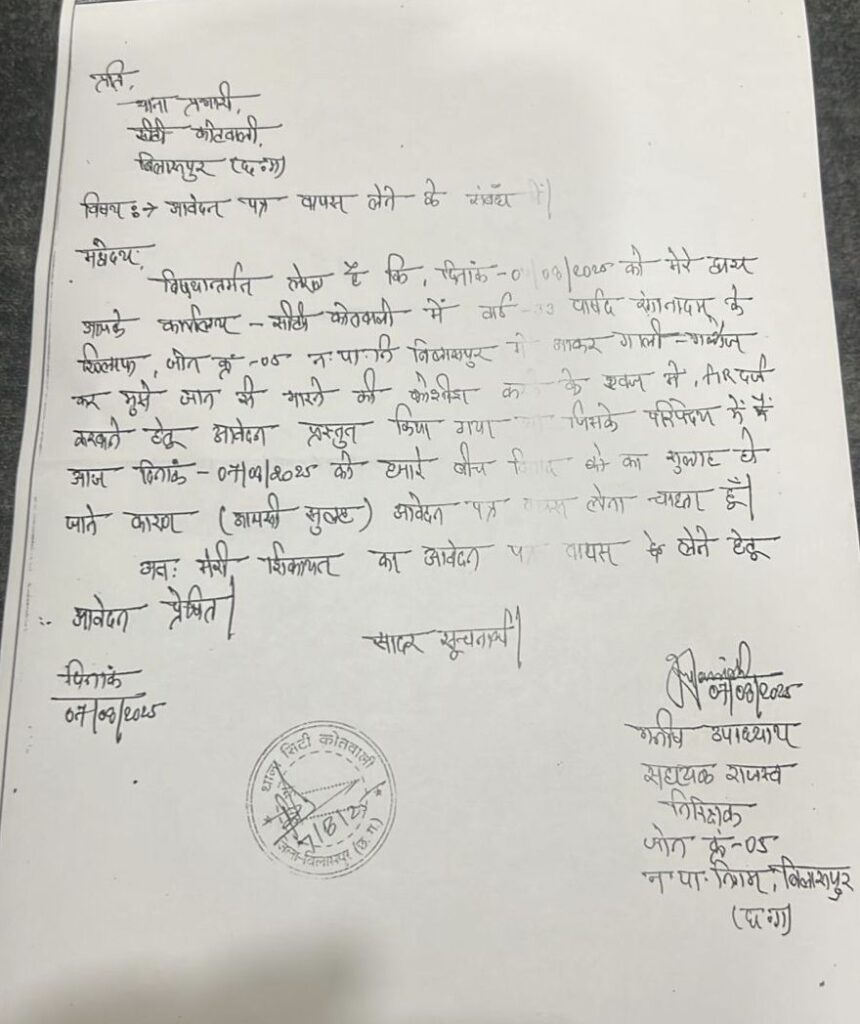 प्रति,
थाना प्रभारी,
सीटी कोतवाली,
बिलासपुर (छ.ग)
विषय :→ आवेदन पत्र वापस लेने के संबंध में|
महोदय,
विषयान्तर्गत लेख है कि, दिनांक-0 /08/2025 को मेरे द्वारा
आपके कार्यालय - सीटी कोतवाली में वार्ड- पार्षद रंगानादम् के
खिलाफ, जोन क्रं-05 न.पा.नि बिलासपुर में आकर गाली-गलौज
कर मुझे जान से मारने की कोशीश के एवज में, FIR दर्ज
करवाने हेतू आवेदन प्रस्तुत किया गया जिसके परिपेक्ष्य में मैं
आज दिनांक - 07/08/2025 को हमारे बीच का सुलह हो
जाने कारण (आपसी सुलह) आवेदन पत्र वापस लेना चाहता हूँ|
अतः मेरी शिकायत का आवेदन पत्र वापस लेने हेतू
आवेदन प्रेषित|
सादर सूचनार्थ|
दिनांक
07/08/2025
07/08/2025
उपाध्याय
सहायक राजस्व
निरिक्षक
जोन क्रं-05
न.पा.निगम, बिलासपुर
(छ.ग)
थाना सिटी कोतवाली
जिला-बिलासपुर (छ.ग.)